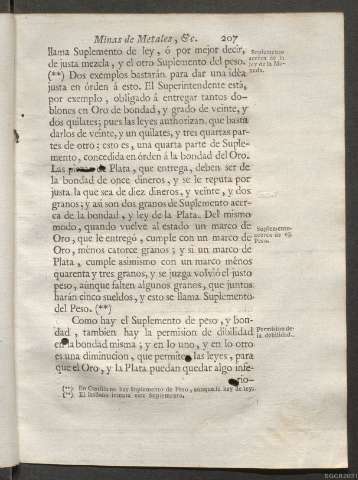 Minas de Metales, &c. 207
llama Suplemento de ley, ó por mejor decir,
de justa mezcla, y el otro Suplemento del peso.
(**) Dos exemplos bastarán para dar una idéa
justa en órden á esto. El Superintendente está,
por exemplo, obligado á entregar tantos do-
blones en Oro de bondad, y grado de veinte, y
dos quilates; pues las leyes authorizan, que basta
darlos de veinte, y un quilates, y tres quartas par-
tes de otro; esto es, una quarta parte de Suple-
mento, concedida en órden á la bondad del Oro.
Las de Plata, que entrega, deben ser de
la bondad de once dineros, y se le reputa por
justa, la que sea de diez dineros, y veinte, y dos
granos; y así son dos granos de Suplemento acer-
ca de la bondad, y ley de la Plata. Del mismo
modo, quando vuelve al estado un marco de
Oro, que le entregó, cumple con un marco de
Oro, ménos catorce granos; y si un marco de
Plata, cumple asimismo con un marco ménos
quarenta y tres granos, y se juzga volvió el justo
peso, aúnque falten algunos granos, que juntos
harán cinco sueldos, y esto se llama Suplemento
del Peso. (**)
Como hay el Suplemento de peso, y bon-
dad, tambien hay la permision de dibilidad
en la bondad misma; y en lo uno, y en lo otro
es una diminucion, que permiten las leyes, para
que el Oro, y la Plata puedan quedar algo infe-
rio-
(**) En Castellano hay Suplemento de Peso, aunque le hay de ley.
(**) El Italiano trunca este Suplemento.
Suplementos
acerca de la
ley de la Mo-
neda.
Suplemento
acerca de el
Peso.
Permision de
la debilidad.